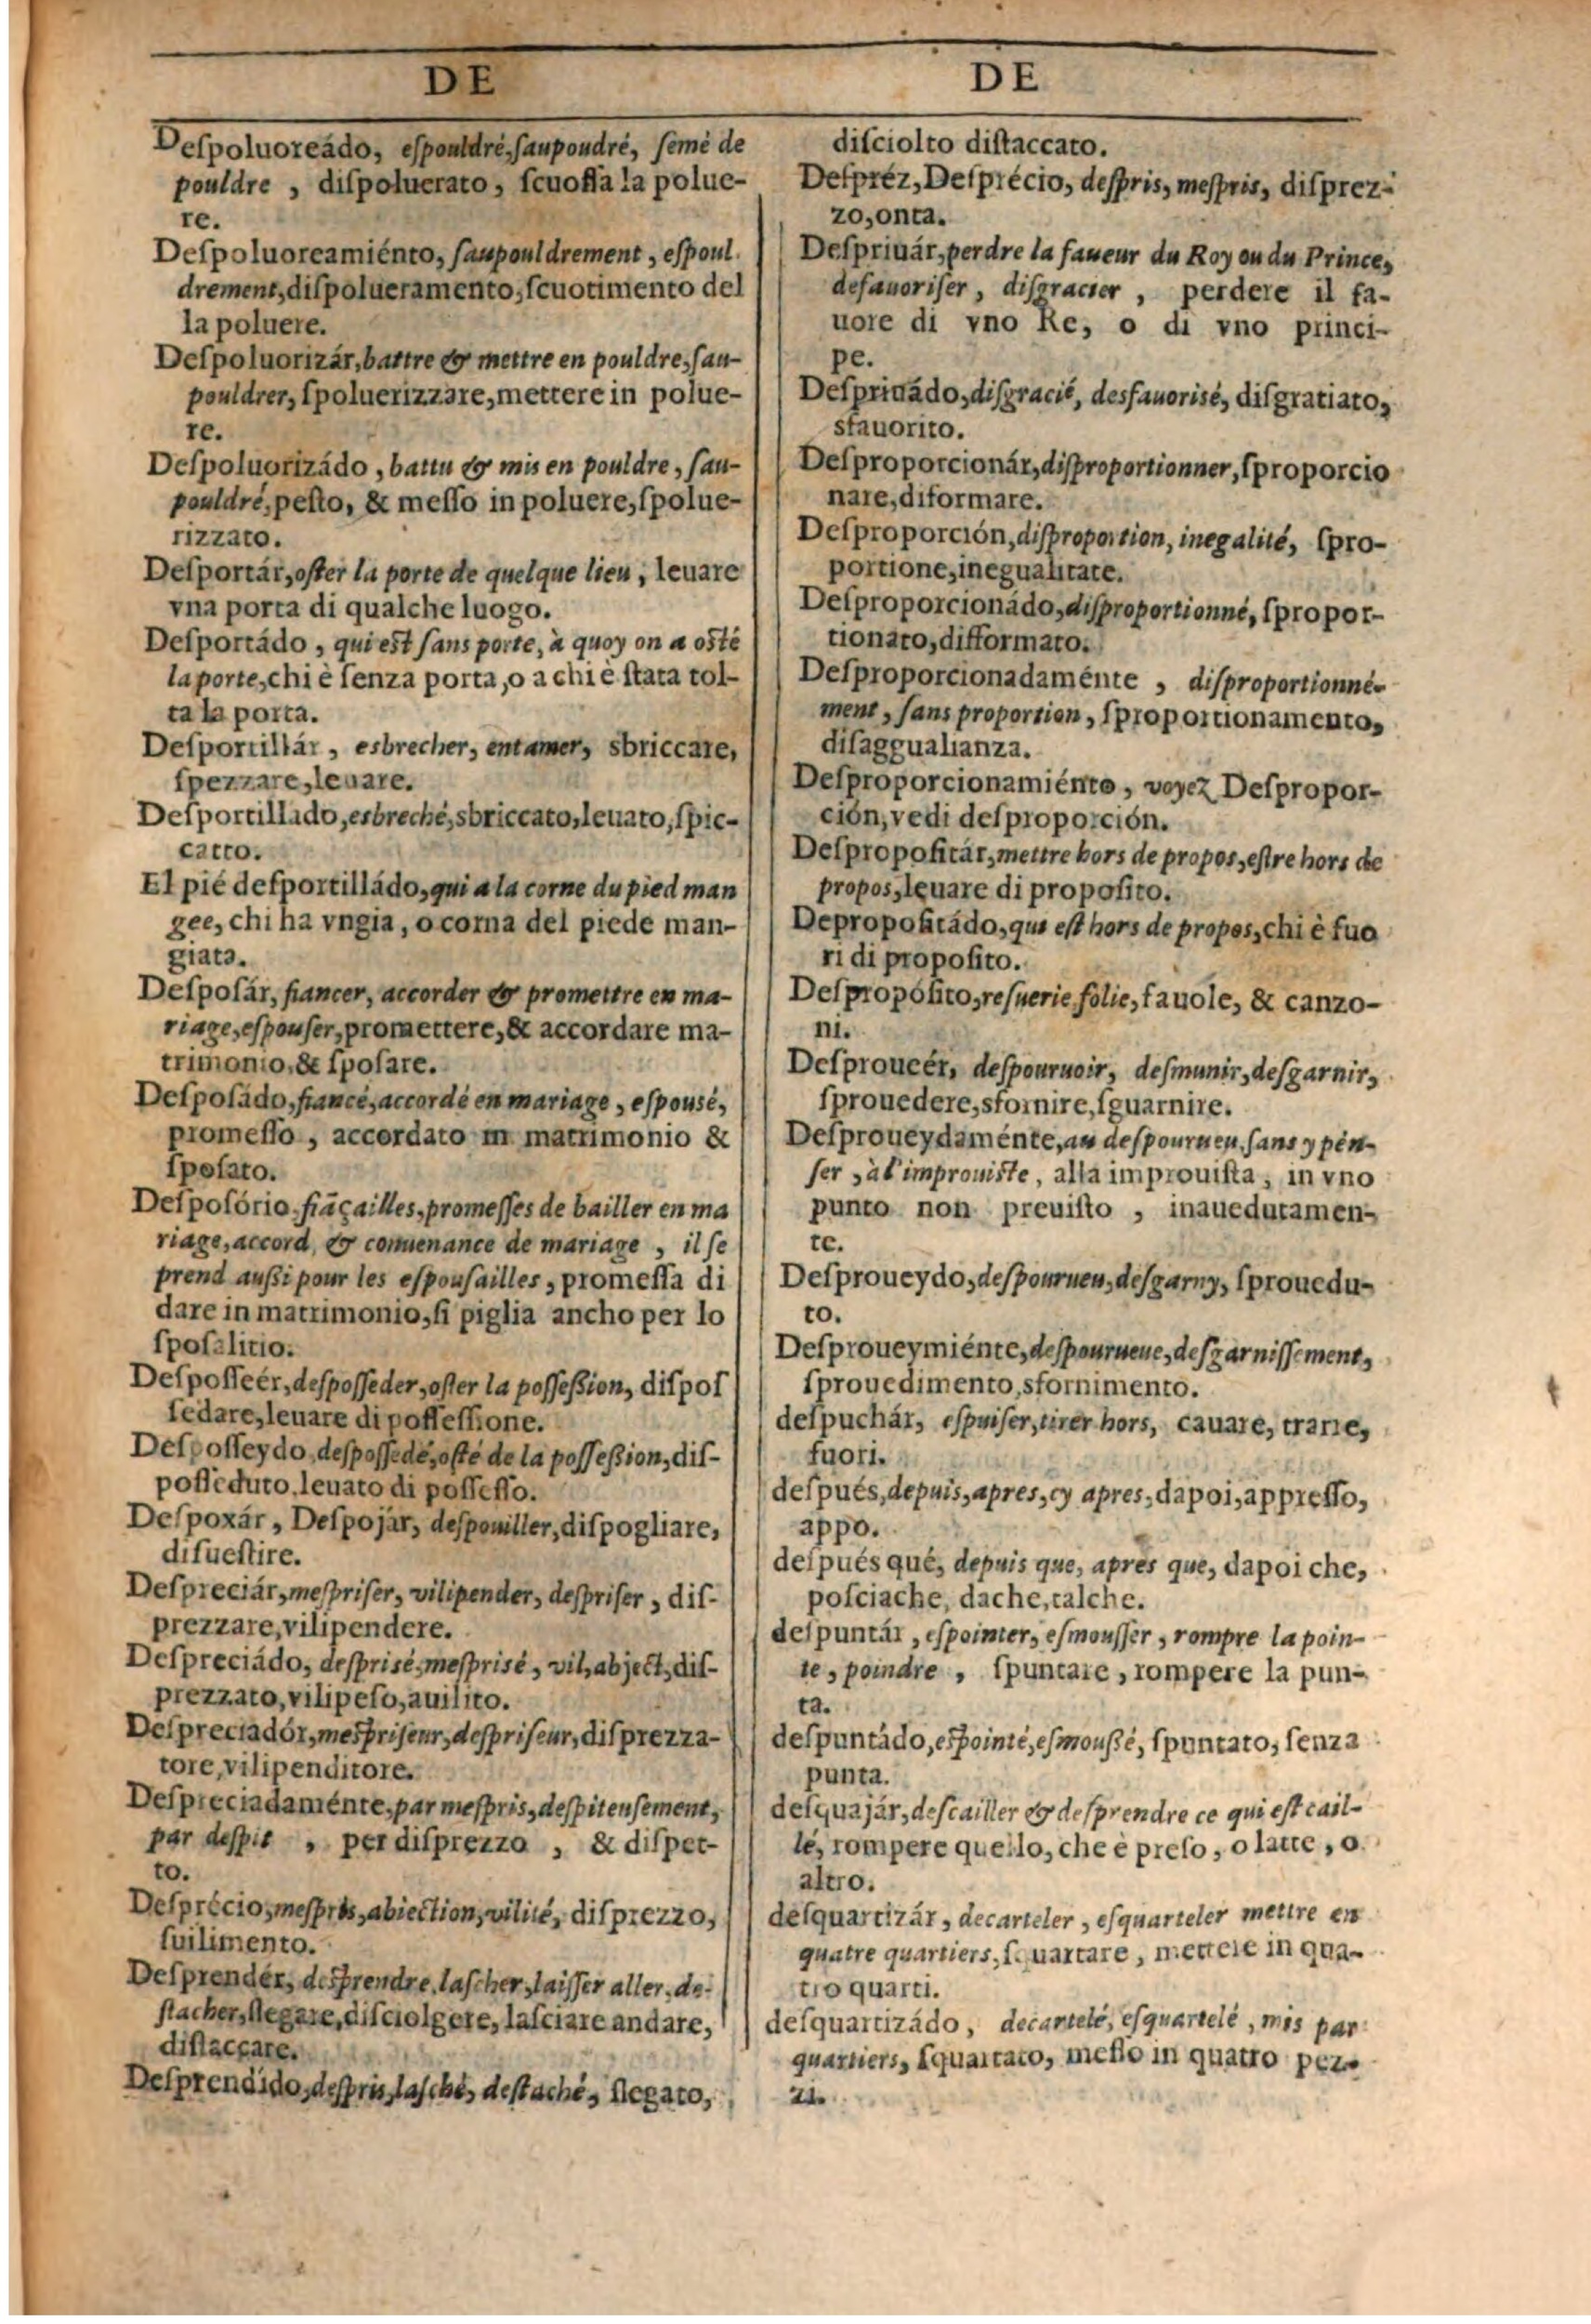 DE
Deſpoluoreádo, eſpouldré, ſaupoudré, ſemé de
pouldre , diſpoluerato, ſcuoſſa la polue-
re.
Deſpoluoreamiénto, ſaupouldrement, eſpoul
drement, diſpolueramento, ſcuotimento del
la poluere.
Deſpoluorizár, battre & mettre en pouldre, ſau-
pouldrer, ſpoluerizzare, mettere in polue-
re.
Deſpoluorizádo, battu & mis en pouldre, ſau-
pouldré, peſto, & meſſo in poluere, ſpolue-
rizzato.
Deſportár, oſter la porte de quelque lieu, leuare
vna porta di qualche luogo.
Deſportádo, qui eſt ſans porte, à quoy on a oſté
la porte, chi è ſenza porta, o a chi è ſtata tol-
ta la porta.
Deſportillár, esbrecher, entamer, sbriccare,
ſpezzare, leuare.
Deſportillado, esbreché, sbriccato, leuato, ſpic-
catto.
El pié deſportilládo, qui a la corne du pied man
gee, chi ha vngia, o corna del piede man-
giata.
Deſpoſár, fiancer, accorder & promettre en ma-
riage, eſpouſer, promettere, & accordare ma-
trimonio, & ſpoſare.
Deſpoſádo, fiancé, accordé en mariage, eſpousé,
promeſſo, accordato in matrimonio &
ſpoſato.
Deſpoſório, fiãçailles, promeſſes de bailler en ma
riage, accord, & conuenance de mariage, il ſe
prend auſsi pour les eſpouſailles, promeſſa di
dare in matrimonio, ſi piglia ancho per lo
ſpoſalitio.
Deſpoſſeér, deſpoſſeder, oſter la poſſeſsion, diſpoſ
ſedare, leuare di poſſeſſione.
Deſpoſſeydo, deſpoſſedé, oſté de la poſſeſsion, diſ-
poſſeduto, leuato di poſſeſſo.
Deſpoxár, Deſpojár, deſpouiller, diſpogliare,
diſueſtire.
Deſpreciár, meſpriſer, vilipender, deſpriſer, diſ-
prezzare, vilipendere.
Deſpreciádo, deſprisé, meſprisé, vil, abject, diſ-
prezzato, vilipeſo, auilito.
Deſpreciadór, meſpriſeur, deſpriſeur, diſprezza-
tore, vilipenditore.
Deſpreciadaménte, par meſpris, deſpiteuſement,
par deſpit , per diſprezzo , & diſpet-
to.
Deſprécio, meſpris, abiection, vilité, diſprezzo,
ſuilimento.
Deſprendér, deſprendre, laſcher, laiſſer aller, de-
ſtacher, ſlegare, diſciolgere, laſciare andare,
diſtaccare.
Deſprendído, deſpris, laſché, deſtaché, ſlegato,
DE
diſciolto diſtaccato.
Deſpréz, Deſprécio, deſpris, meſpris, diſprez-
zo, onta.
Deſpriuár, perdre la faueur du Roy ou du Prince,
defauoriſer, diſgracier, perdere il fa-
uore di vno Re, o di vno princi-
pe.
Deſpriuádo, diſgracié, desfauorisé, diſgratiato,
sfauorito.
Deſproporcionár, diſproportionner, ſproporcio
nare, diformare.
Deſproporción, diſproportion, inegalité, ſpro-
portione, inegualitate.
Deſproporcionádo, diſproportionné, ſpropor-
tionato, difformato.
Deſproporcionadaménte , diſproportionné-
ment, ſans proportion, ſproportionamento,
diſaggualianza.
Deſproporcionamiénto, voyez Deſpropor-
ción, vedi deſproporción.
Deſpropoſitár, mettre hors de propos, eſtre hors de
propos, leuare di propoſito.
Depropoſitádo, qui eſt hors de propos, chi è fuo
ri di propoſito.
Deſpropóſito, reſuerie, folie, fauole, & canzo-
ni.
Deſproueér, deſpouruoir, deſmunir, deſgarnir,
ſprouedere, sfornire, ſguarnire.
Deſproueydaménte, au deſpourueu, ſans y pen-
ſer, à l'improuiſte, alla improuiſta, in vno
punto non preuiſto , inauedutamen-
te.
Deſproueydo, deſpourueu, deſgarny, ſprouedu-
to.
Deſproueymiénte, deſpourueue, deſgarniſſement,
ſprouedimento, sfornimento.
deſpuchár, eſpuiſer, tirer hors, cauare, trarre,
fuori.
deſpués, depuis, apres, cy apres, dapoi, appreſſo,
appo.
deſpués qué, depuis que, apres que, dapoi che,
poſciache, dache, talche.
deſpuntár, eſpointer, eſmouſſer, rompre la poin-
te, poindre , ſpuntare, rompere la pun-
ta.
deſpuntádo, eſpointé, eſmouſsé, ſpuntato, ſenza
punta.
deſquajár, deſcailler & deſprendre ce qui eſt cail-
lé, rompere quello, che è preſo, o latte, o
altro.
deſquartizár, decarteler, eſquarteler mettre en
quatre quartiers, ſquartare, mettere in qua-
tro quarti.
deſquartizádo, decartelé, eſquartelé, mis par
quartiers, ſquartato, meſſo in quatro pez-
zi.